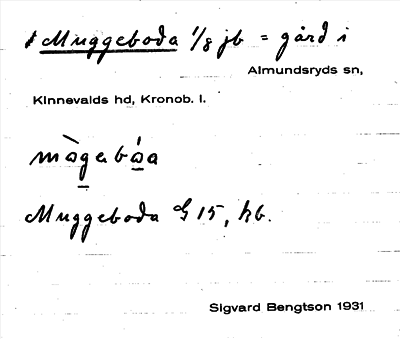 Muggeboda 1/8 jb = gård i
Almundsryds sn,
Kinnevalds hd, Kronob. l.
Muggeboda G 15, hb.
Sigvard Bengtson 1931